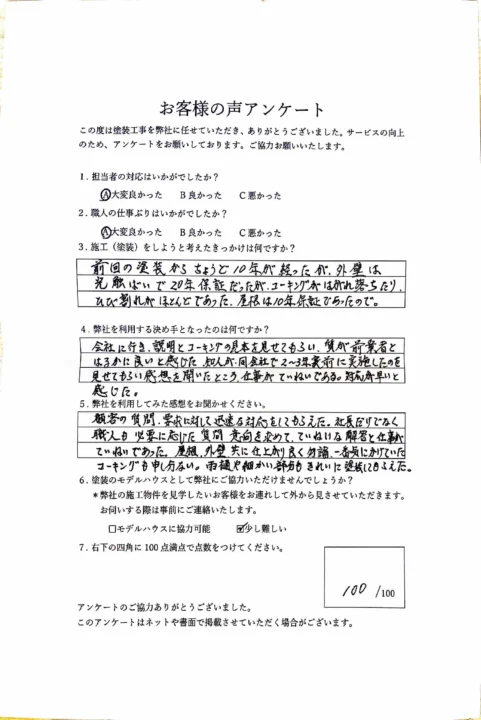 お客様の声アンケート
この度は塗装工事を弊社に任せていただき、ありがとうございました。サービスの向上
のため、アンケートをお願いしております。ご協力お願いいたします。
1. 担当者の対応はいかがでしたか?
A大変良かった B良かった C悪かった
2. 職人の仕事ぶりはいかがでしたか?
A大変良かった B良かった C悪かった
3. 施工(塗装)をしようと考えたきっかけは何ですか?
前回の塗装からちょうど10年が経ったが、外壁は
光触ばいで20年保証だったが、コーキングがはがれ落ちたり、
ひび割れがほとんどであった、屋根は10年保証であったので。
4. 弊社を利用する決め手となったのは何ですか?
会社に行き、説明とコーキングの見本を見せてもらい、質が前業者と
はるかに良いと感じた 知人が、同会社で2〜3年前に実施したのを
見せてもらい感想を聞いたところ、仕事がていねいである。対応が早いと
感じた。
5. 弊社を利用してみた感想をお聞かせください。
顧客の質問、要求に対して迅速な対応をしてもらえた。社長だけでなく
職人も必要に応じた質問 意向を求めて、ていねいな解答と仕事が
ていねいであった。屋根、外壁共に仕上がり良く勿論、一番気にかけていた
コーキングも申し分ない。雨樋や細かい部分もきれいに塗装してもらえた。
6. 塗装のモデルハウスとして弊社にご協力いただけませんでしょうか?
*弊社の施工物件を見学したいお客様をお連れして外から見させていただきます。
お伺いする際は事前にご連絡いたします。
□モデルハウスに協力可能 ☑少し難しい
7. 右下の四角に100点満点で点数をつけてください。
100 /100
アンケートのご協力ありがとうございました。
このアンケートはネットや書面で掲載させていただく場合がございます。